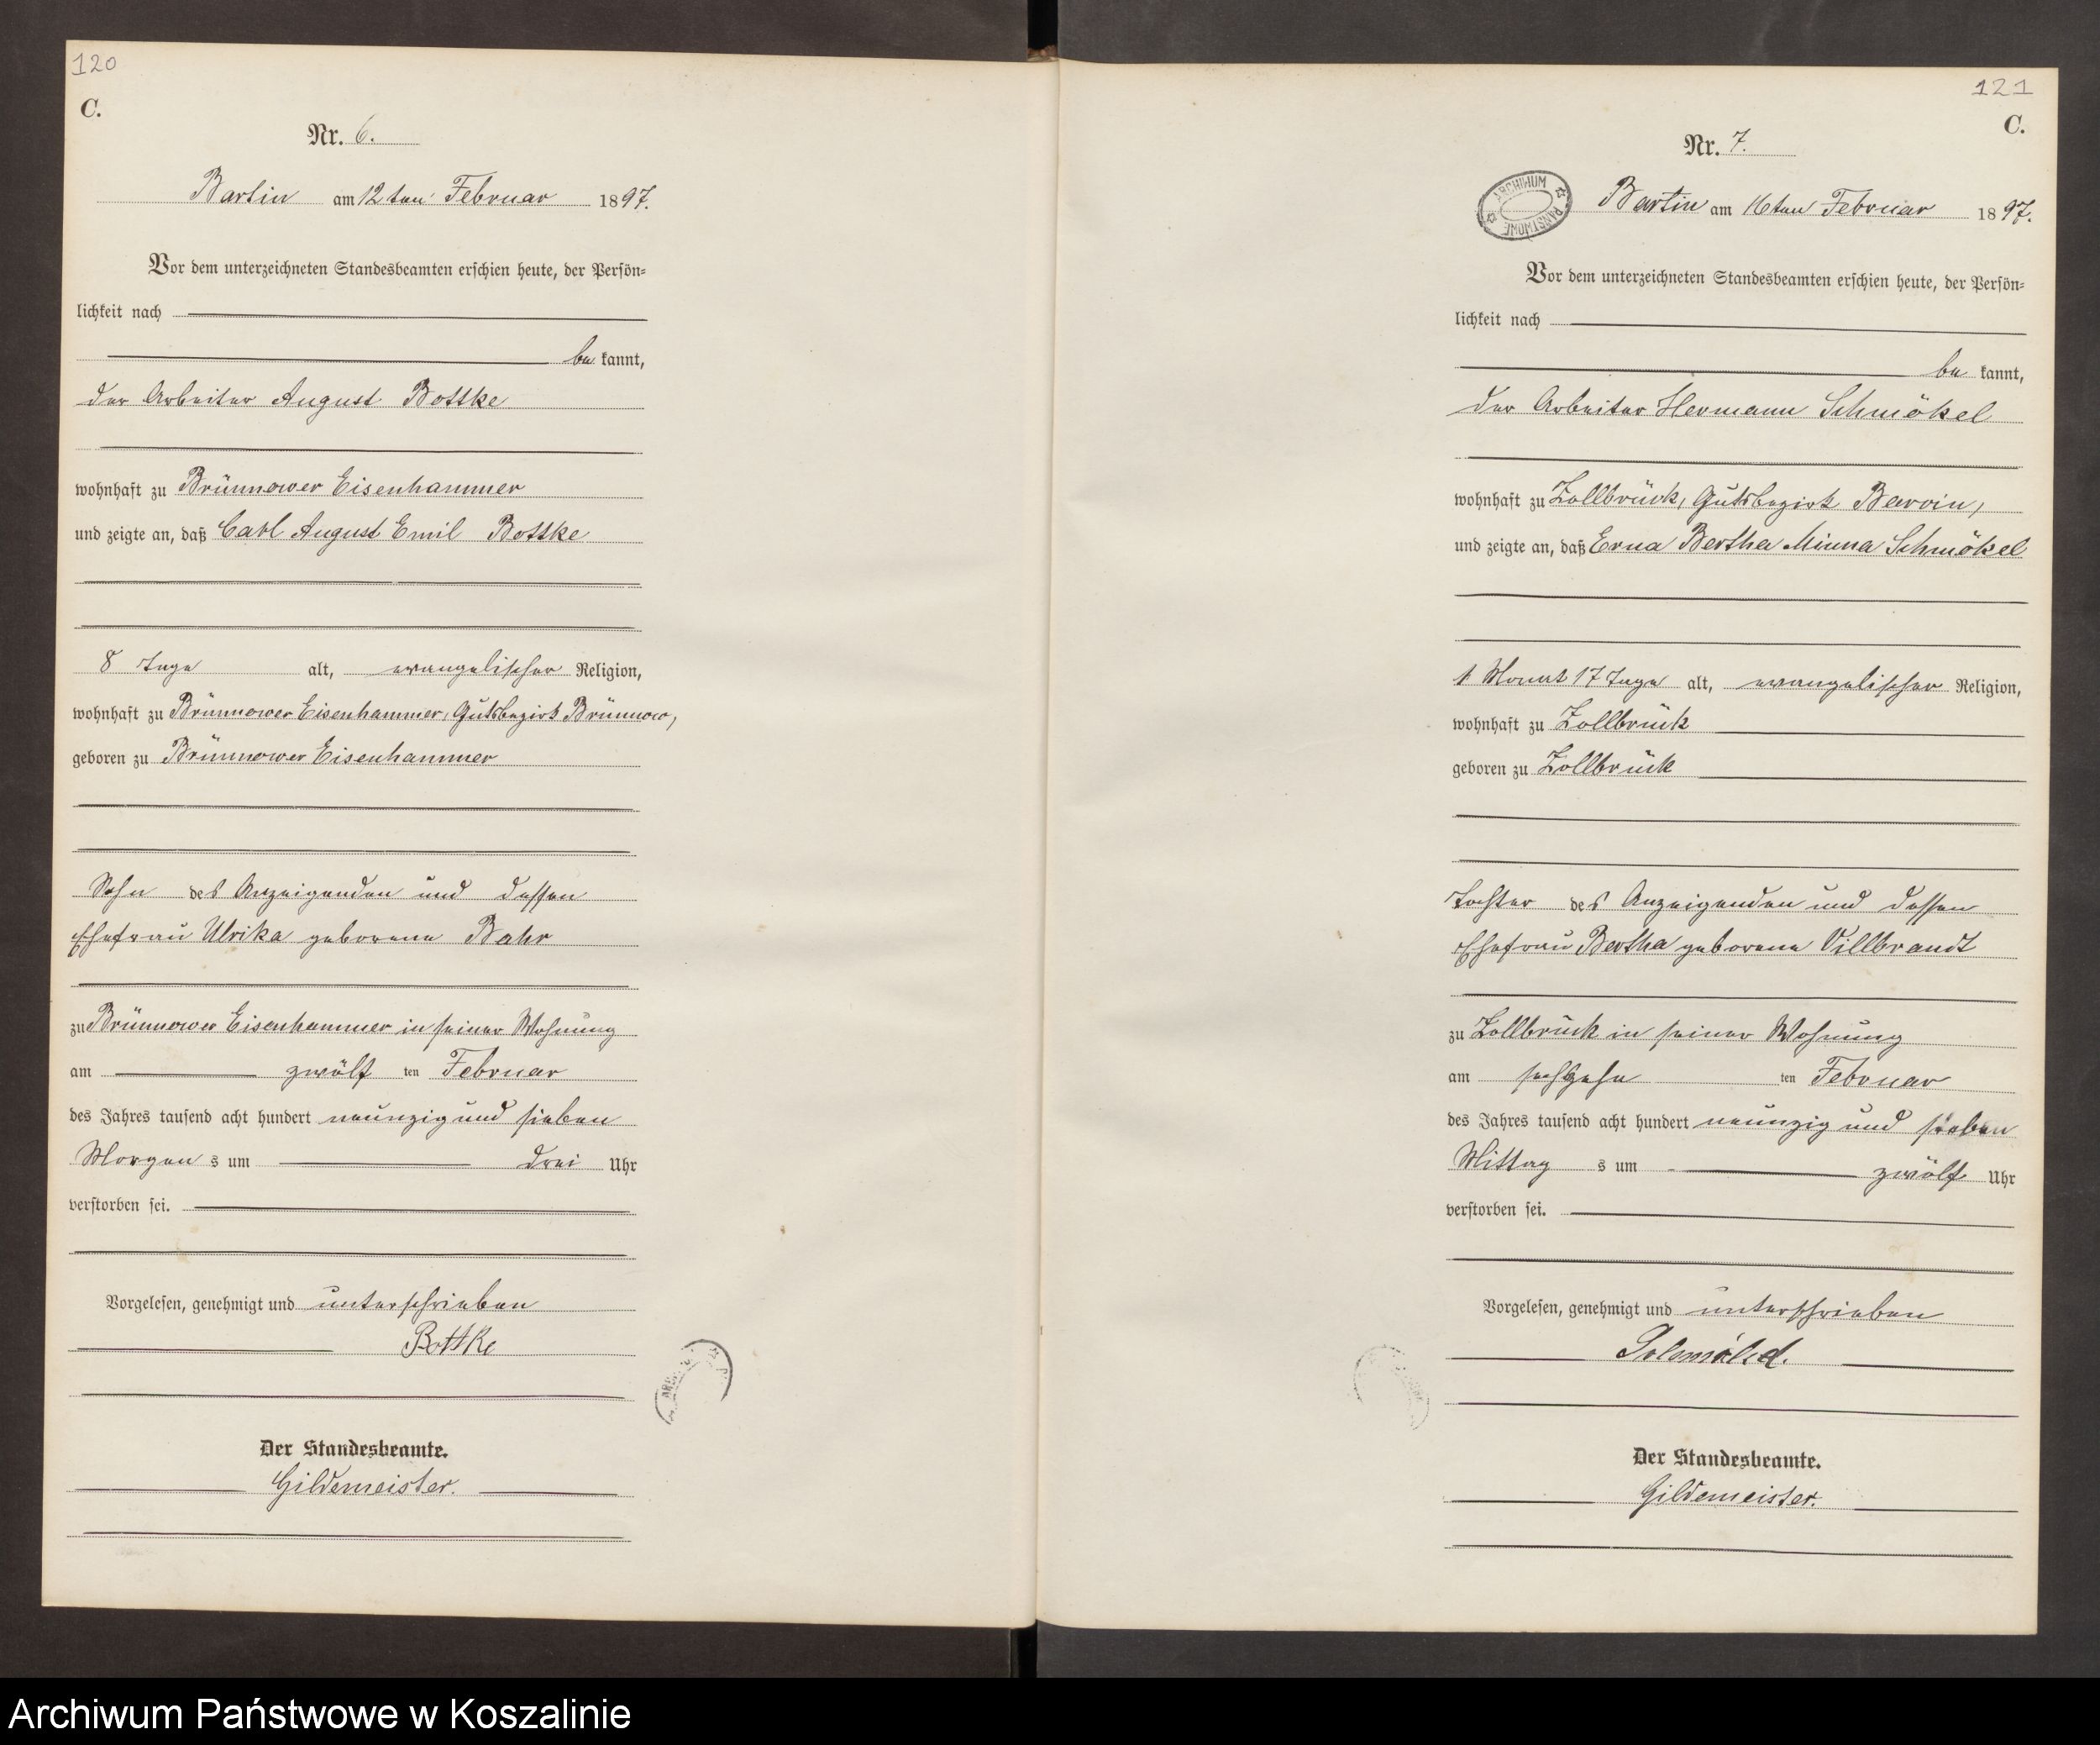 120
C.
Nr. 6.
Bartin am 12ten Februar 1897.
Vor dem unterzeichneten Standesbeamten erschien heute, der Persön=
lichkeit nach
be kannt,
der Arbeiter August Bottke
wohnhaft zu Brünnower Eisenhammer
und zeigte an, daß Carl August Emil Bottke
8 Tage alt, evangelischer Religion,
wohnhaft zu Brünnower Eisenhammer, Gutsbezirk Brünnow,
geboren zu Brünnower Eisenhammer
Sohn des Anzeigenden und dessen
Ehefrau Ulrika geborene Bahr
zu Brünnower Eisenhammer in seiner Wohnung
am zwölf ten Februar
des Jahres tausend acht hundert neunzig und sieben
Morgen s um drei Uhr
verstorben sei.
Vorgelesen, genehmigt und unterschrieben
Bottke
Der Standesbeamte.
Gildemeister.
121
C.
Nr. 7.
ARCHIWUM PAŃSTWOWE
Bartin am 16ten Februar 1897.
Vor dem unterzeichneten Standesbeamten erschien heute, der Persön=
lichkeit nach
be kannt,
der Arbeiter Hermann Schmökel
wohnhaft zu Zollbrück, Gutsbezirk Barvin,
und zeigte an, daß Erna Bertha Minna Schmökel
1 Monat 17 Tage alt, evangelischer Religion,
wohnhaft zu Zollbrück
geboren zu Zollbrück
Tochter des Anzeigenden und dessen
Ehefrau Bertha geborene Villbrandt
zu Zollbrück in seiner Wohnung
am sechzehn ten Februar
des Jahres tausend acht hundert neunzig und sieben
Mittag s um zwölf Uhr
verstorben sei.
Vorgelesen, genehmigt und unterschrieben
Schmökel.
Der Standesbeamte.
Gildemeister.
Archiwum Państwowe w Koszalinie